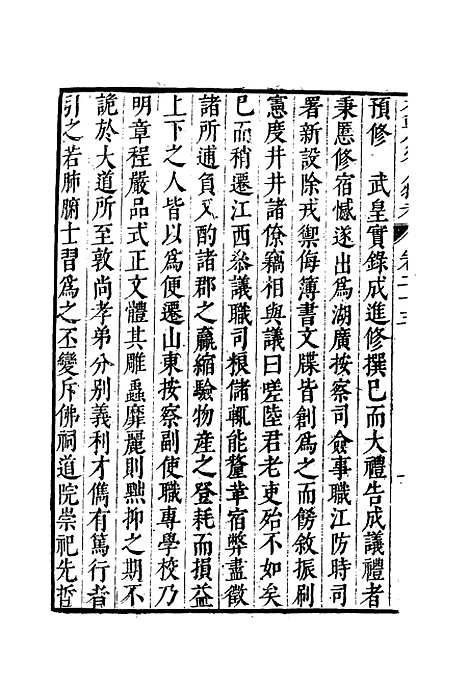 預修　武皇實錄成進修撰已而大禮告成議禮者
秉慝修宿憾遂出爲湖廣按察司僉事職江防時司
署新設除戎禦侮簿書文牒皆創爲之而餝敘振刷
憲度井井諸僚竊相與議曰嗟陸君老吏殆不如矣
已而稍遷江西叅議職司粮儲輒能釐革宿弊盡徵
諸所逋負又酌諸郡之羸縮驗物產之登耗而損益
上下之人皆以爲便遷山東按察副使職專學校乃
明章程嚴品式正文體其雕蟲靡麗則黜抑之期不
詭於大道所至敦尚孝弟分别義利才儁有篤行者
引之若肺腑士習爲之丕變斥佛祠道院崇祀先哲